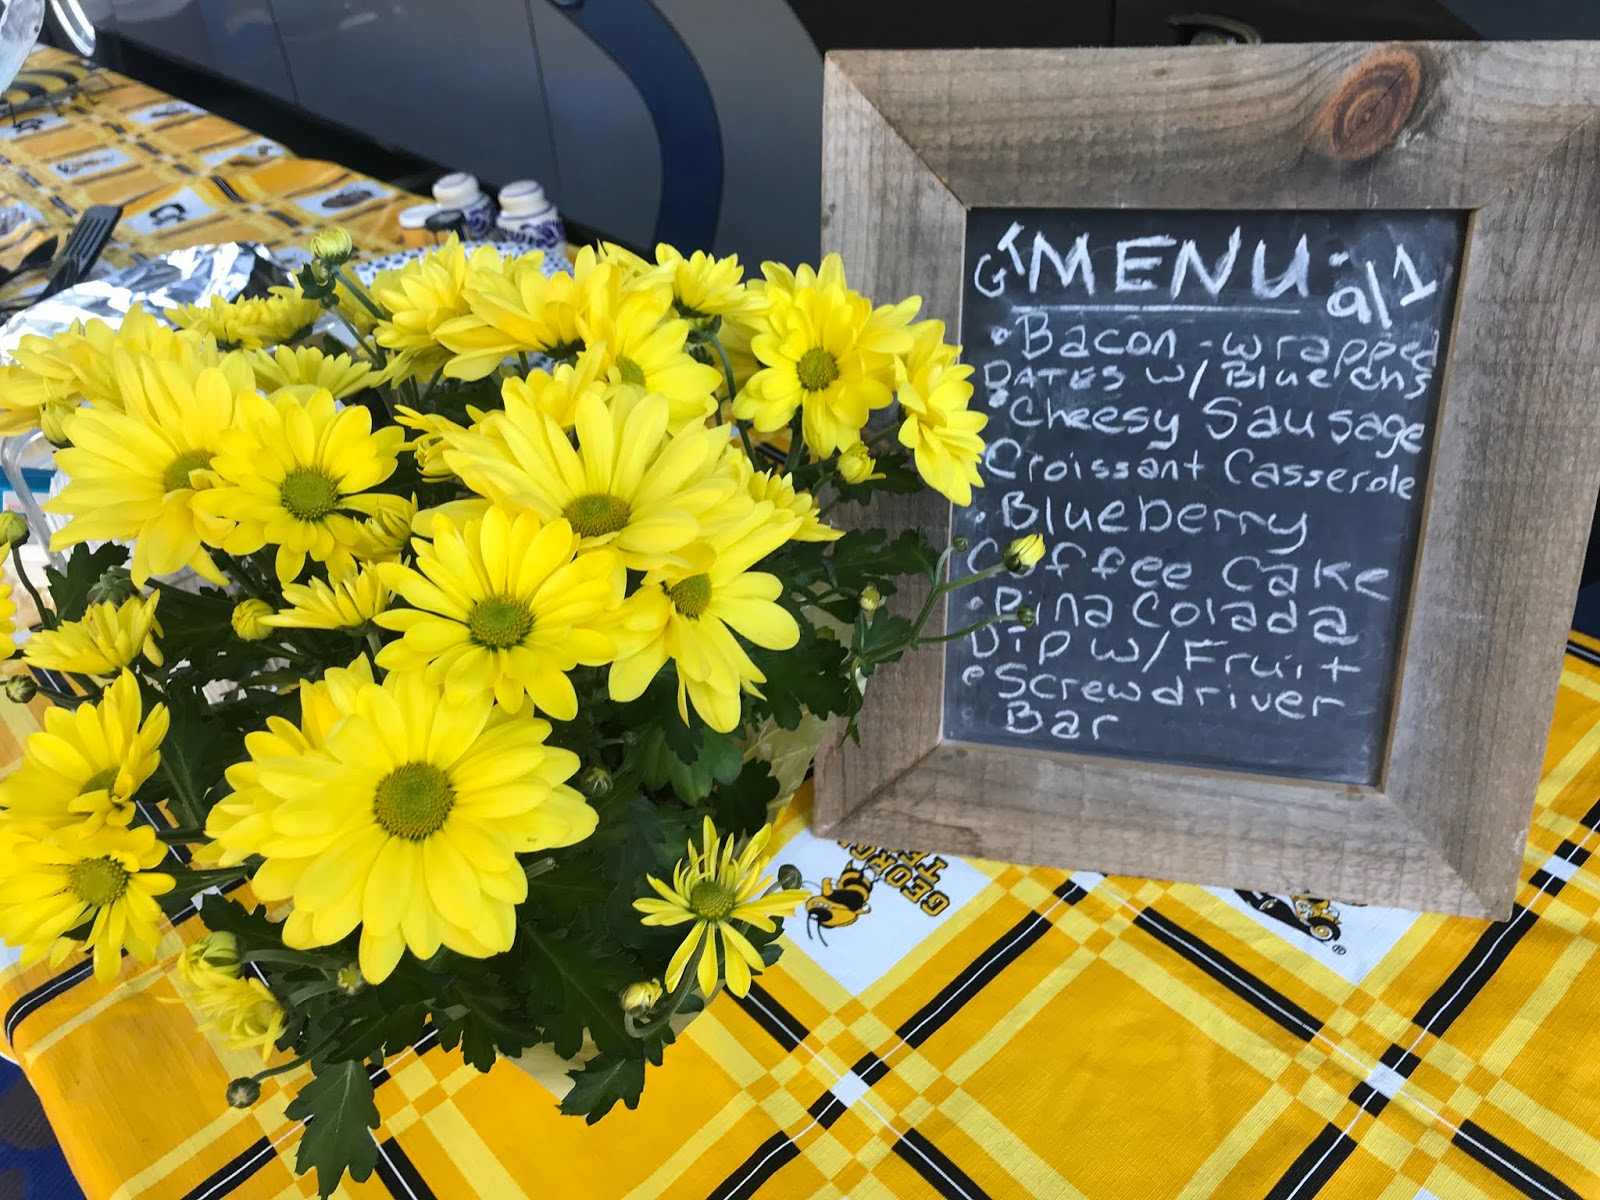 GT MENU: 9/1
• Bacon-wrapped
DATES w/ Blue chs
• Cheesy Sausage
Croissant Casserole
• Blueberry
Coffee Cake
• Pina Colada
Dip w/ Fruit
• Screwdriver
Bar
GEORGIA
TECH
®